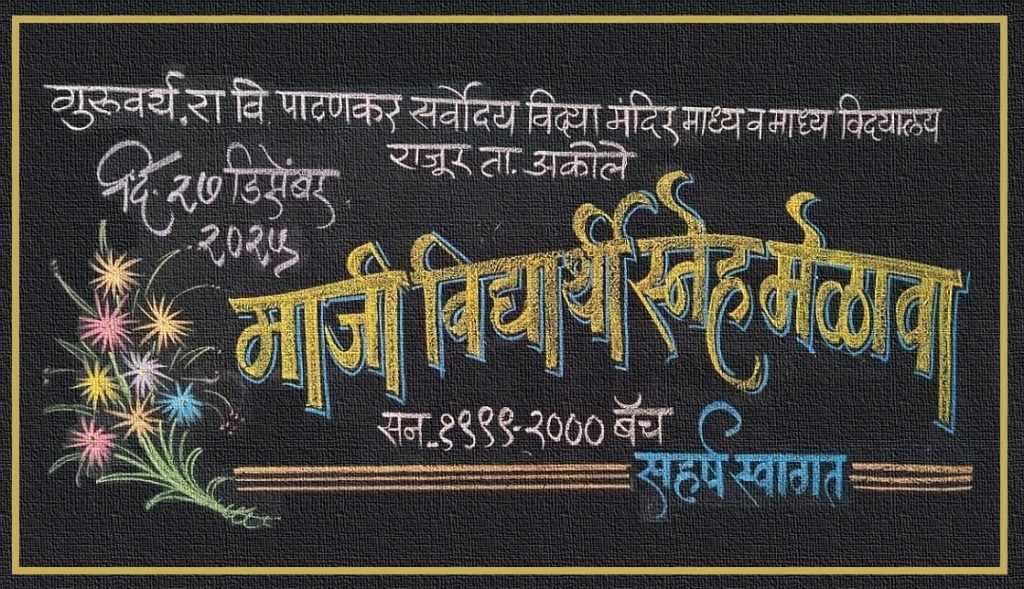 गुरुवर्य.रा वि. पाटणकर सर्वोदय विद्या मंदिर माध्य व माध्य विद्यालय
राजूर ता. अकोले
दि. २७ डिसेंबर
२०२५
माजी विद्यार्थी स्नेह मेळावा
सन-१९९९-२००० बॅच
सहर्ष स्वागत